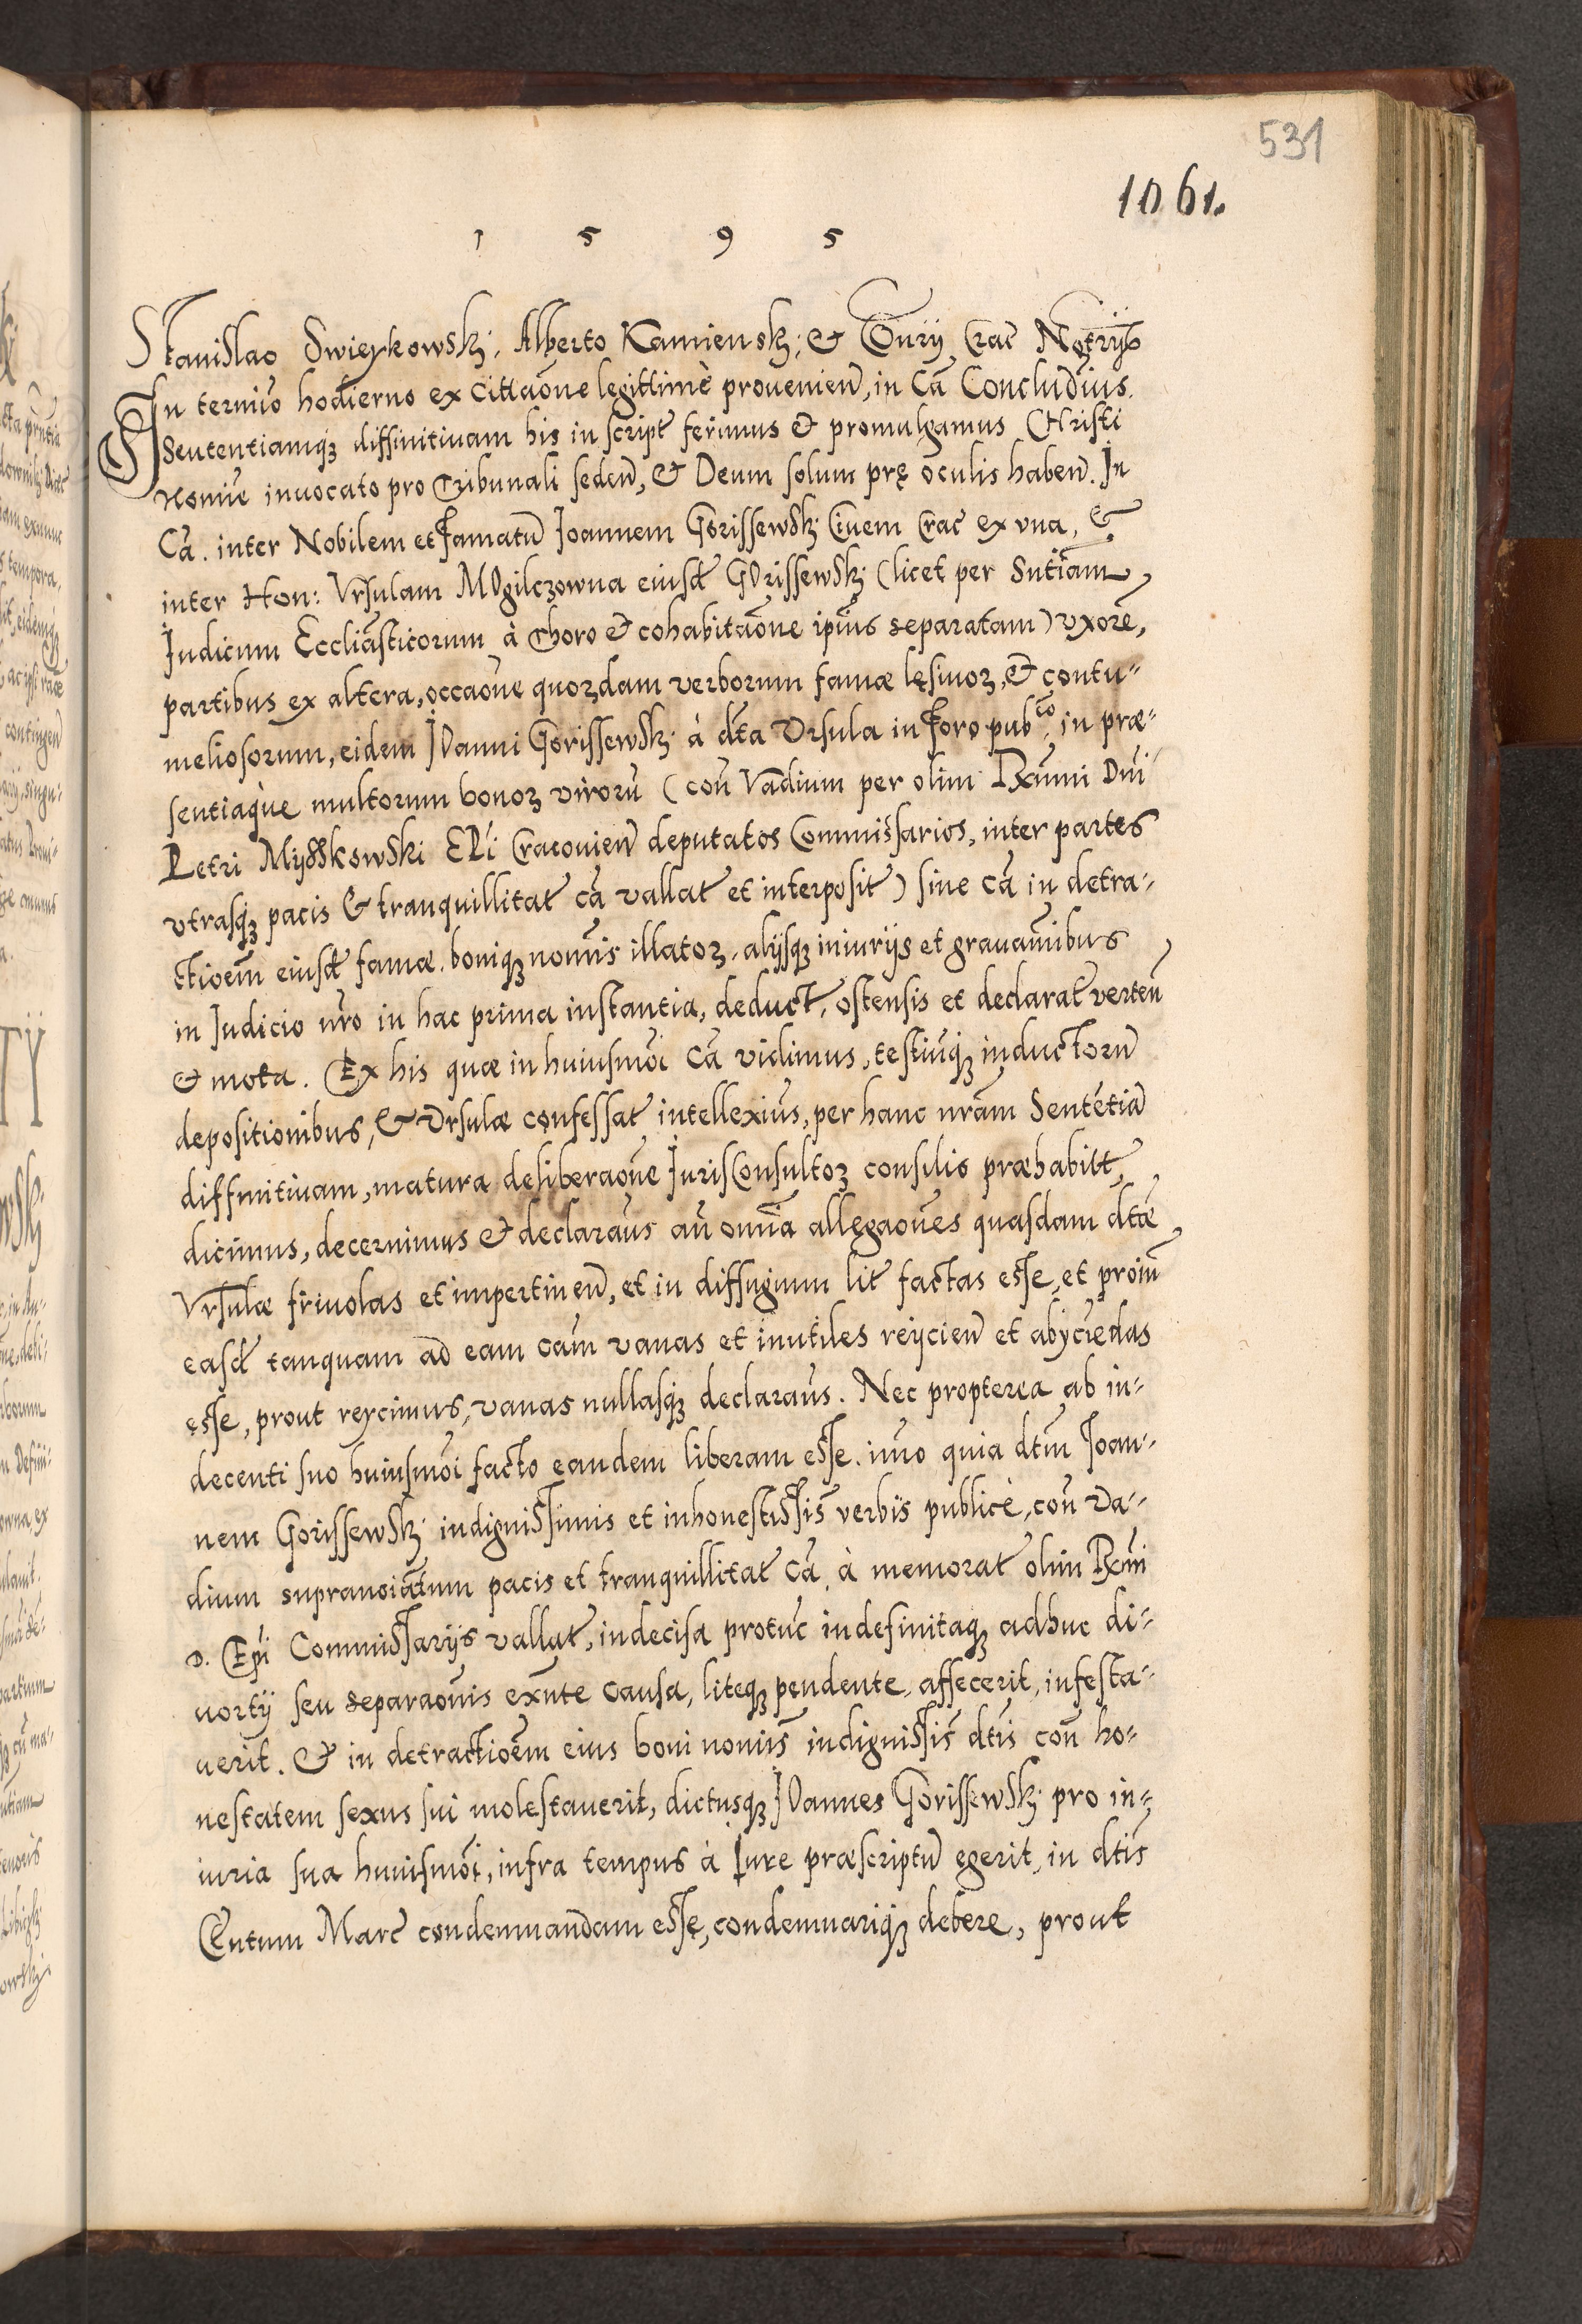 531
1061.
1 5 9 5
Stanislao Swieykowskj, Alberto Kamienskj, & Coñrij Crac̃ Notrijs
In termĩo hodierno ex cittaõne legittimè prouenieñ, in Cã Concludĩus.
Sententiamq́ȝ diffinitiuam his in script̃ ferimus & promulgamus Christi
Nomĩe inuocato pro Tribunali sedeñ, & Deum solum prę oculis habeñ. In
Cã. inter Nobilem et Famatũ Joannem Gorissewskj Ciuem Crac̃ ex vna, &
inter Hon: Vrsulam MOgilczowna eiusd̃ GOrissewskj (licet per Sntiãm
Judicum Eccliãsticorum à Thoro & cohabitaõne ipĩus separatam) vxorẽ,
partibus ex altera, occaõne quorȝdam verborum famæ lęsiuorȝ, & contu-
meliosorum, eidem JOanni Gorissewskj à dc̃ta Vrsula in Foro pub.co, in præ-
sentiaq̀ue multorum bonorȝ virorũ (coñ Vãdium per olim Rx̃mi Dñi
Petri Myszkowski EPĩ Cracouieñ deputatos Commissarios, inter partes
vtrasq́ȝ pacis & tranquillitat̃ cã vallat̃ et interposit̃) siue cã in detra-
ctioẽm eiusd̃ famæ. boniq́ȝ nomĩs illatorȝ, alijsq́ȝ iniurijs et grauamĩbus
in Judicio nr̃o in hac prima instantia, deduct̃, ostensis et declarat̃ verteñ
& mota. Ex his quæ in huiusmõi Cã vidimus, testiũq́ȝ inductorũ
depositionibus, & Vrsulæ confessat̃ intellexĩus, per hanc nr̃am Sentẽtiã
diffinitiuam, matura deliberaõne JurisConsultorȝ consilio præhabitt̃,
dicimus, decernimus & declarãus añ omñia allegaõnes quasdam dc̃tæ
Vrsulæ friuolas et impertineñ, et in diffugium lit̃ factas esse, et proiñ
easd̃ tanquam ad eam cam̃ vanas et inutiles reijcieñ et abijciẽdas
esse, prout reycimus, vanas nullasq́ȝ declarãus. Nec propterea ab in-
decenti suo huiusmõi facto eandem liberam esse. imo quia dc̃tm Joan-
nem Gorissewskj indignissimis et inhonestissis̃ verbis publicè, coñ Va-
dium supranoiãtum pacis et tranquillitat̃ Cã, à memorat̃ olim Rx̃mi
D. Epĩ Commissarijs vallat̃, indecisa protũc indefinitaq́ȝ adhuc di-
uortij seu separaõnis exñte causa, liteq́ȝ pendente, affecerit, infesta-
uerit. & in detractioẽm eius boni nomĩs indignissis̃ dc̃tis coñ ho-
nestatem sexus sui molestauerit, dictusq́ȝ JOannes Gorissewskj pro in-
iuria sua huiusmõi, infra tempus à Jure præscriptũ egerit, in dc̃tis
Centum Marc̃ condemnandam esse, condemnariq́ȝ debere, prout